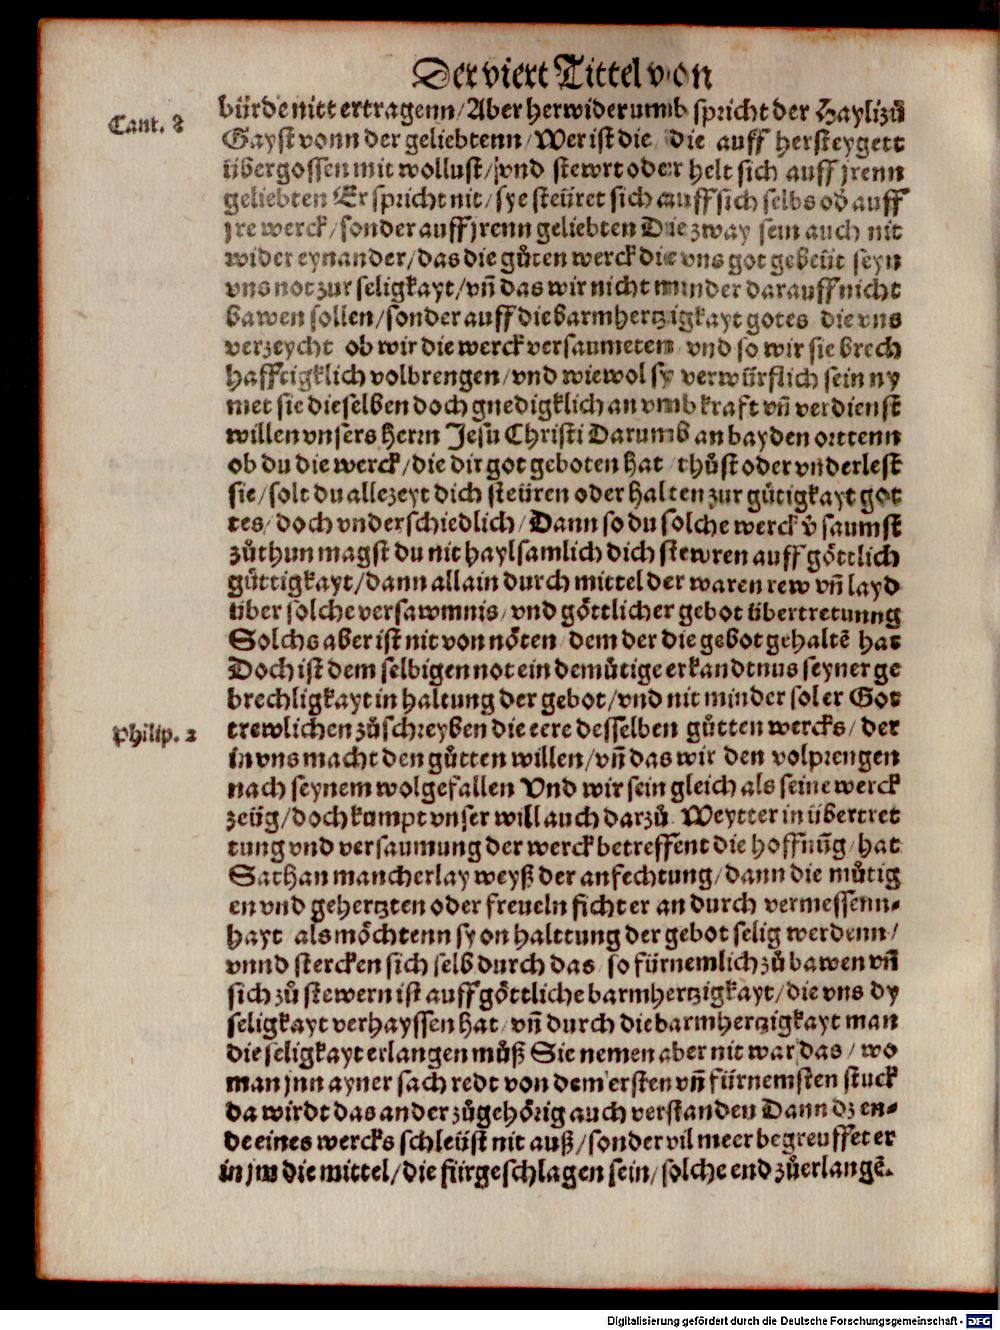 Der viert Tittel von
Cant. 8
bürde nitt ertragenn/ Aber herwiderumb spricht der Hayligũ
Gayst vonn der geliebtenn/ Wer ist die die auff hersteygett
übergossen mit wollust/ vnd stewrt oder helt sich auff jrenn
geliebten Er spricht nit/ sye steüret sich auff sich selbs od̕ auff
jre werck/ sonder auff jrenn geliebten Die zway sein auch nit
wider eynander/ das die gůten werck die vns got gebeüt seyn
vns not zur seligkayt/ vñ das wir nicht minder darauff nicht
bawen sollen/ sonder auff die barmhertzigkayt gotes die vns
verzeycht ob wir die werck versaumeten vnd so wir sie brech
hafftigklich volbrengen/ vnd wiewol sy verwürflich sein ny
met sie die selben doch gnedigklich an vmb kraft vñ verdienst
willen vnsers herrn Jesu Christi Darumb an bayden orttenn
ob du die werck/ die dir got geboten hat thůst oder vnderlest
sie/ solt du allezeyt dich steüren oder halten zur gůtigkayt got
tes/ doch vnderschiedlich/ Dann so du solche werck v̕saumst
zůthun magst du nit haylsamlich dich stewren auff göttlich
güttigkayt/ dann allain durch mittel der waren rew vñ layd
über solche versawmnis/ vnd göttlicher gebot übertretunng
Solchs aber ist nit von nöten/ dem der die gebot gehaltẽ hat
Doch ist dem selbigen not ein demůtige erkandtnus seyner ge
brechligkayt in haltung der gebot/ vnd nit minder sol er Got
Philip. 2
trewlichen zůschreyben die eere desselben gůtten wercks/ der
in vns macht den gůtten willen/ vñ das wir den volprengen
nach seynem wolgefallen Vnd wir sein gleich als seine werck
zeüg/ doch kumpt vnser will auch darzů Weytter in übertret
tung vnd versaumung der werck betreffent die hoffnũg/ hat
Sathan mancherlay weyß der anfechtung/ dann die můtig
en vnd gehertzten oder freueln ficht er an durch vermessenn-
hayt als möchtenn sy on halttung der gebot selig werdenn/
vnnd stercken sich selb durch das/ so fürnemlich zů bawen vñ
sich zů stewern ist auff göttliche barmhertzigkayt/ die vns dy
seligkayt verhayssen hat/ vñ durch die barmhertzigkayt man
die seligkayt erlangen můß Sie nemen aber nit war das/ wo
man jnn ayner sach redt von dem ersten vñ fürnemsten stuck
da wirdt das ander zůgehörig auch verstanden Dann dz en-
de eines wercks schleüst nit auß/ sonder vil meer begreuffet er
in jm die mittel/ die fürgeschlagen sein/ solche end zůerlangẽ.
Digitalisierung gefördert durch die Deutsche Forschungsgemeinschaft - DFG